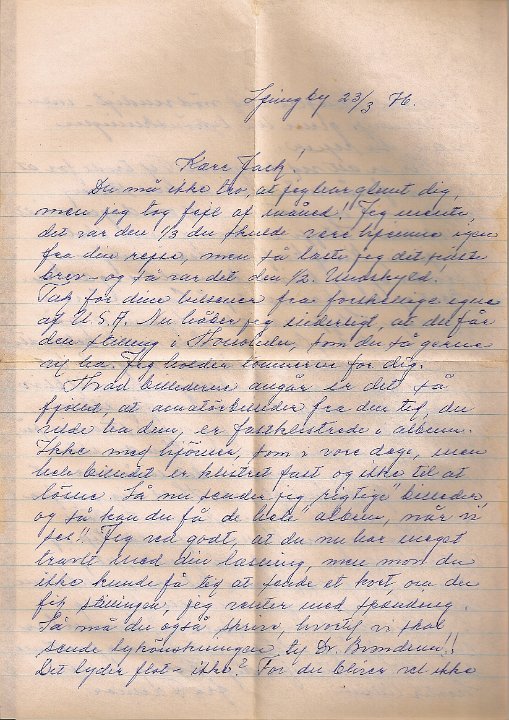 Lyngby 23/3 76.
Kære Jack!
Du må ikke tro, at jeg har glemt dig,
men jeg tog fejl af måned!! Jeg mente,
det var den 1/3 du skulde være hjemme igen
fra din rejse, men så læste jeg det sidste
brev - og så var det den 1/2. Undskyld.
Tak for dine hilsener fra forskellige egne
af U.S.A. Nu håber jeg inderligt, at du får
den stilling i Honolulu, som du så gerne
vil ha. Jeg holder tommerne for dig.
Hvad billederne angår er det så
fjollet, at amatörbilleder fra den tid, du
vilde ha dem, er fastklistrede i albumn.
Ikke med hjörner, som i vore dage, men
hele billedet er klistret fast og ikke til at
lösne. Så nu sender jeg "rigtige" billeder
og så kan du få de "hele" album, når vi
ses!! Jeg ved godt, at du nu har meget
travlt med din læsning, men mon du
ikke kunde få tid at sende et kort, om du
fik stillingen, jeg venter med spænding.
Så må du også skrive, hvortil vi skal
sende lykönskningen til Dr.
Det lyder flot - ikke? For du bliver vel ikke